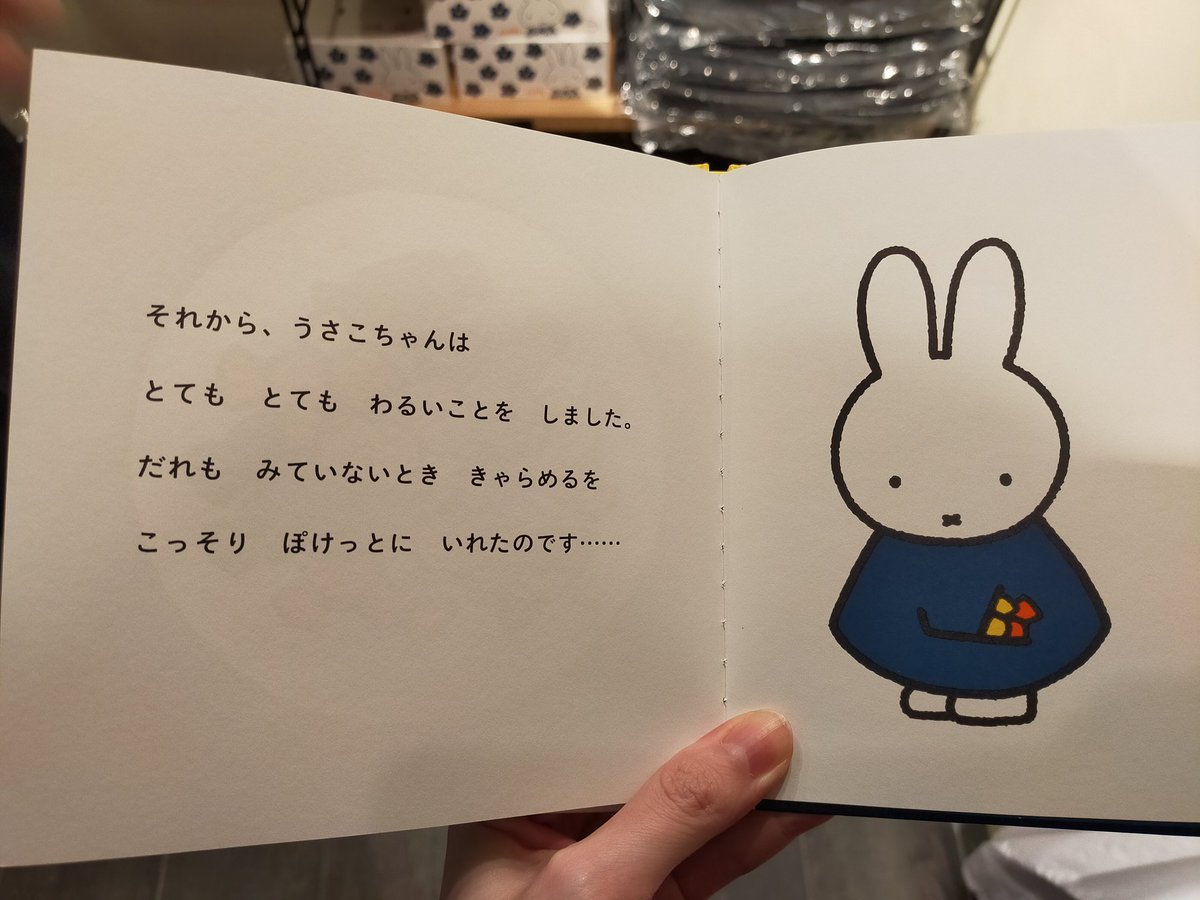 それから、うさこちゃんは
とても　とても　わるいことを　しました。
だれも　みていないとき　きゃらめるを
こっそり　ぽけっとに　いれたのです……